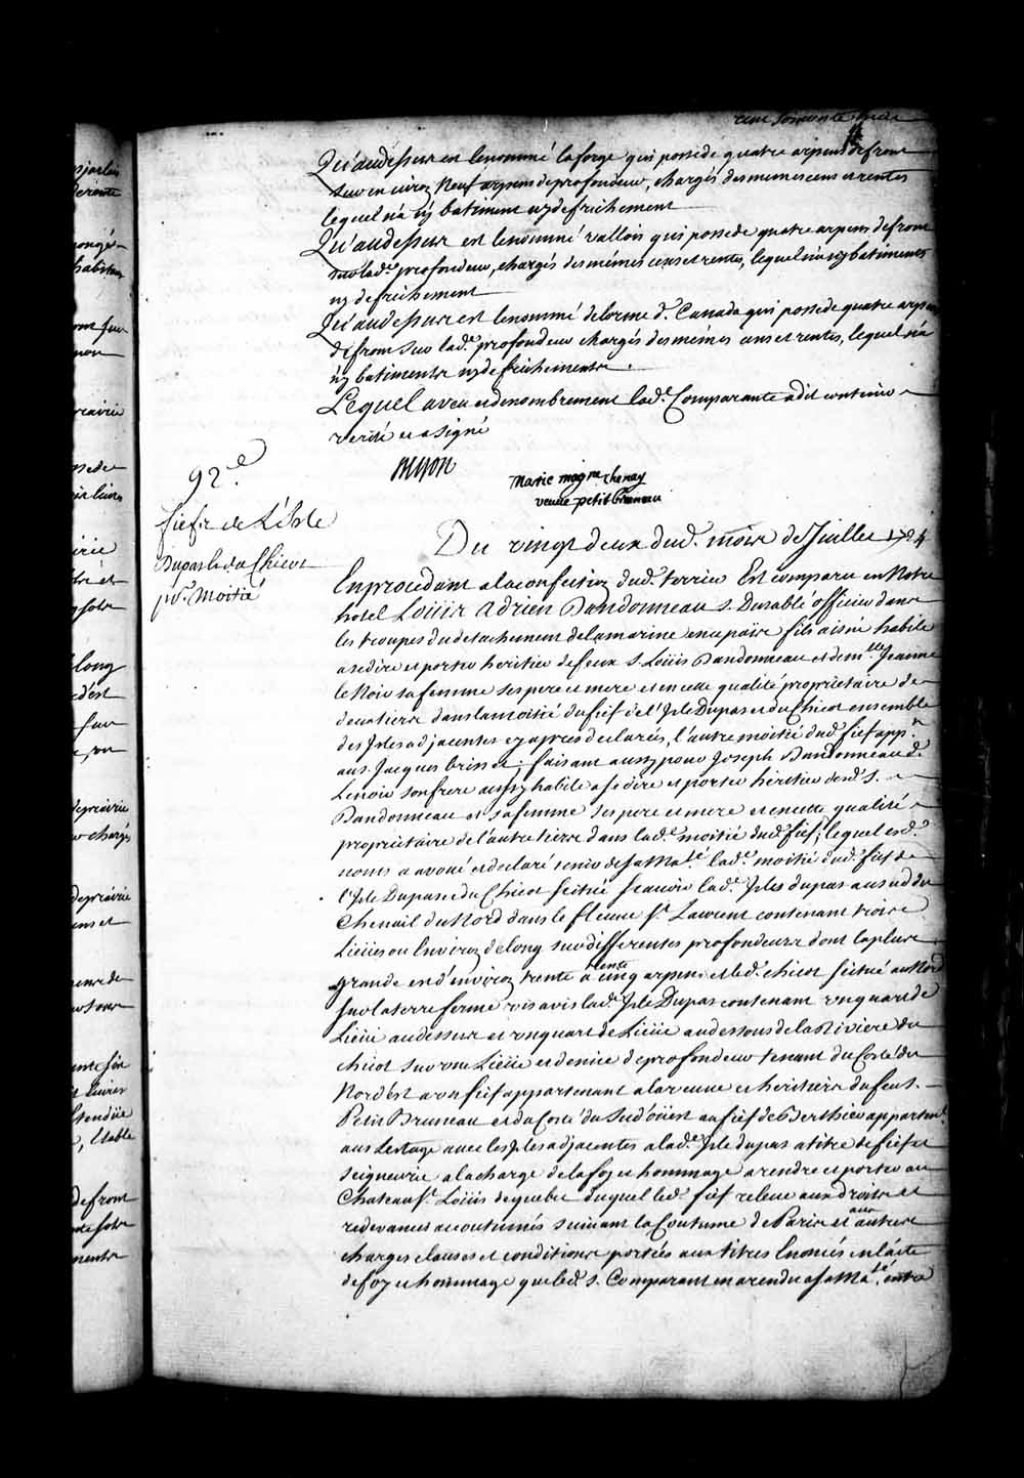 cent soixante
Qu'audessus est le nommé laforge qui possede quatre arpens de front
sur environ Neuf arpens de profondeur, chargés des memes cens et rentes
lequel n'a ny batiment ny defrichement
Qu'audessus est le nommé vallois qui possede quatre arpens de front
sur lad.e profondeur, chargés des mémes cens et rentes, lequel n'a ny batiments
ny defrichement
Qu'audessus est le nommé delorme d.t Canada qui possede quatre arpens
de front sur lad.e profondeur chargés des mémes cens et rentes, lequel n'a
ny batiments ny defrichements.
Lequel aveu et denombrement lad.e Comparante a dit contenir
verité et a signé
Marie chenay
veuve petit Bruneau
92.e
fief de L'isle
Dupas et du Chicot
pr. Moitié
Du vingt deux dud. mois de Juillet
En procedant a la confection dud. terrier Est comparu en Notre
hotel Loüis Adrien Dandonneau s. Dusablé officier dans
les troupes du detachement de la marine en ce païs fils aisné habile
a se dire et porter heritier de feux s. Loüis Dandonneau et dem.lle Jeanne
le Noir sa femme ses pere et mere et en cette qualité proprietaire de
deux tiers dans la moitié du fief de l'Isle Dupas et du Chicot ensemble
des Isles adjacentes cy apres declarés, l'autre moitié dud. fief app.t
au s. Jacques brisset; faisant aussy pour Joseph Dandonneau d.
Lenoir son frere aussy habile a se dire et porter héritier desd. s.
Dandonneau et sa femme ses pere et mere et en cette qualité
proprietaire de l'autre tiers dans lad.e moitié dud. fief; lequel esd.
noms a avoué et declaré tenir de Sa Ma.té lad.e moitié dud. fief de
l'Isle Dupas et du Chicot scitué scavoir lad.e Isles dupas au sud du
Chenail du Nord dans le fleuve S.t Laurent contenant trois
Lieües ou Environ de long sur differentes profondeurs dont la plus
grande est d'environ trente a trente cinq arpens et led. chicot scitué au Nord
sur la terre ferme vis avis lad.e Isle Dupas contenant un quart de
Lieüe audessus et un quart de Lieüe audessous de la Riviere du
chicot sur une Lieüe et demie de profondeur tenant du Costé du
Nord'est a un fief appartenant a la veuve et heritiers du feu s.
Petit Bruneau et du Costé du Sud'oüest au fief de Berthier appartent.
au s. Lestage avec les Isles adjacentes a lad.e Isle dupas a titre de fief et
seigneurie a la charge de la foy et hommage a rendre et porter au
Chateau S.t Loüis de quebec duquel led. fief releve aux droits et
redevances accoutumés suivant la Coutume de Paris et aux autres
charges clauses et conditions portées aux titres Enoncés en l'acte
de foy et hommage que led. s. Comparant en a rendu a Sa Ma.té entre